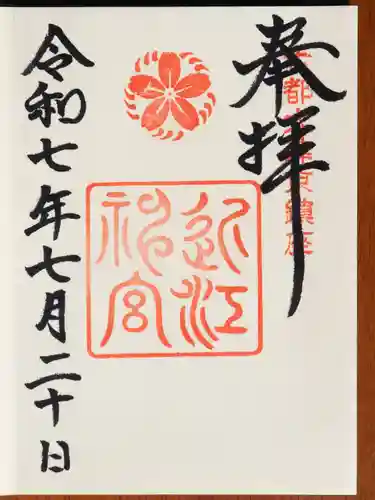 奉拝
近江
神宮
令和七年七月二十日